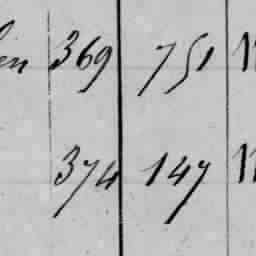 369 751
374 147